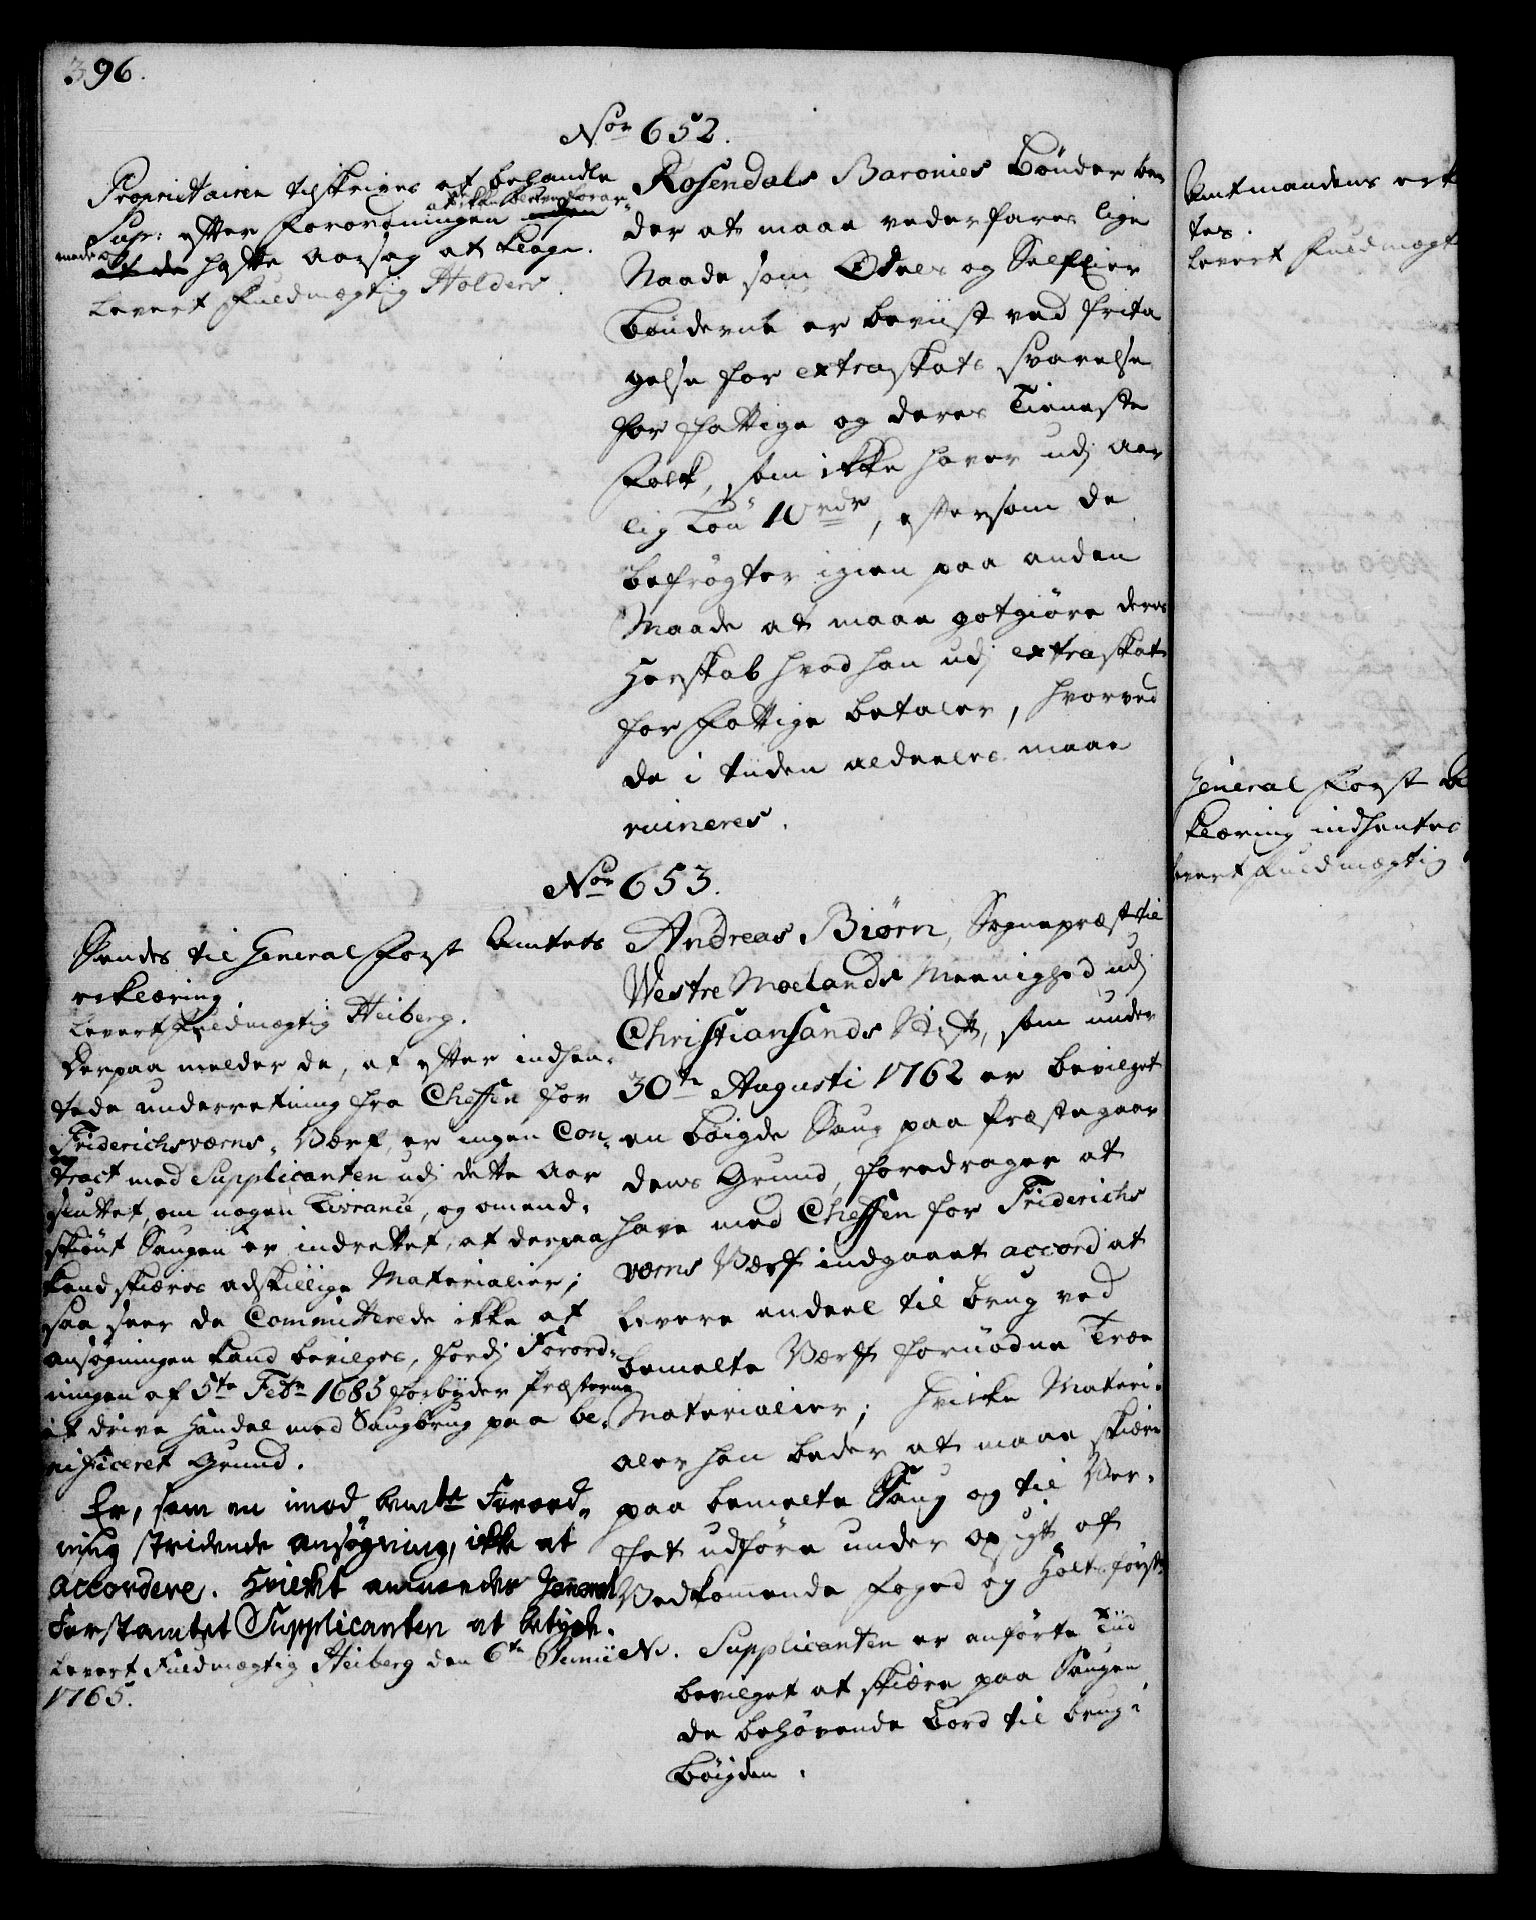 396.
Nor 652.
Proprietairen tilskrives at behandle
Supp: efter Forordningen
at ikke bliver foraar-
hafte aarsag at klage.
Levert Fuldmægtig Holders.
Rosendals Baronies bønder be
der at maae vederfares lige
Naade som Odels og Selfeier
bønderne er beviist ved frita
gelse for extraskats svarelse
for fattige og deres Tieneste
Folk, som ikke haver udj aar
lig Løn 10 rdr, eftersom de
befrøgter igien paa anden
Maade at maae gotgiøre deres
Herskab hvad han udj extraskat
for Fattige betaler, hvorved
de i tiiden aldeeles maae
ruineres.
Nor 653.
Sendes til General Forst Amtets
erklæring.
Levert Fuldmægtig Heiberg.
Derpaa melder de, at efter indhen-
tede underretning fra Cheffen for
Friderichsværns Værf, er ingen Con-
tract med Supplicanten udj dette Aar
sluttet, om nogen Livrance, og omend-
skiønt Saugen er indrettet, at derpaa
kand skiæres adskillige Materialier;
saa seer de Committerede ikke at
ansøgningen kand bevilges, fordj Forord-
ningen af 5te Febr 1685 forbyder Præsterne
at drive Handel med Saugbrug paa be-
nificeret Grund.
Er, som en imod bemte Forord-
ning stridende ansøgning, ikke at
accordere. Hvilket anmodes General
Forstamtet Supplicanten at betyde.
Levert Fuldmægtig Heiberg den 6te Junii
1765.
Andreas Biørn, Sognepræst til
Westre Moelands Meenighed udj
Christiansands Stift, som under
30te Augusti 1762 er bevilget
en bøigde Saug paa Præstegaar
dens Grund, foredrager at
have med Cheffen for Friderichs
værns Værf indgaaet accord at
levere endeel til brug ved
bemelte Værft fornødne Træe
Materialier; hvilke Materi-
aler han beder at maae skiære
paa bemelte Saug og til Ver-
fet udføre under opsigt af
Vedkomende Foged og Holtzførster
N. Supplicanten er anførte Tiid
bevilget at skiære paa Saugen
de behøvende bord til brug i
bøigden.
Amtmandens erk
tes.
Levert Fuldmægt
General Forst A
klæring indhentes
Levert Fuldmægtig